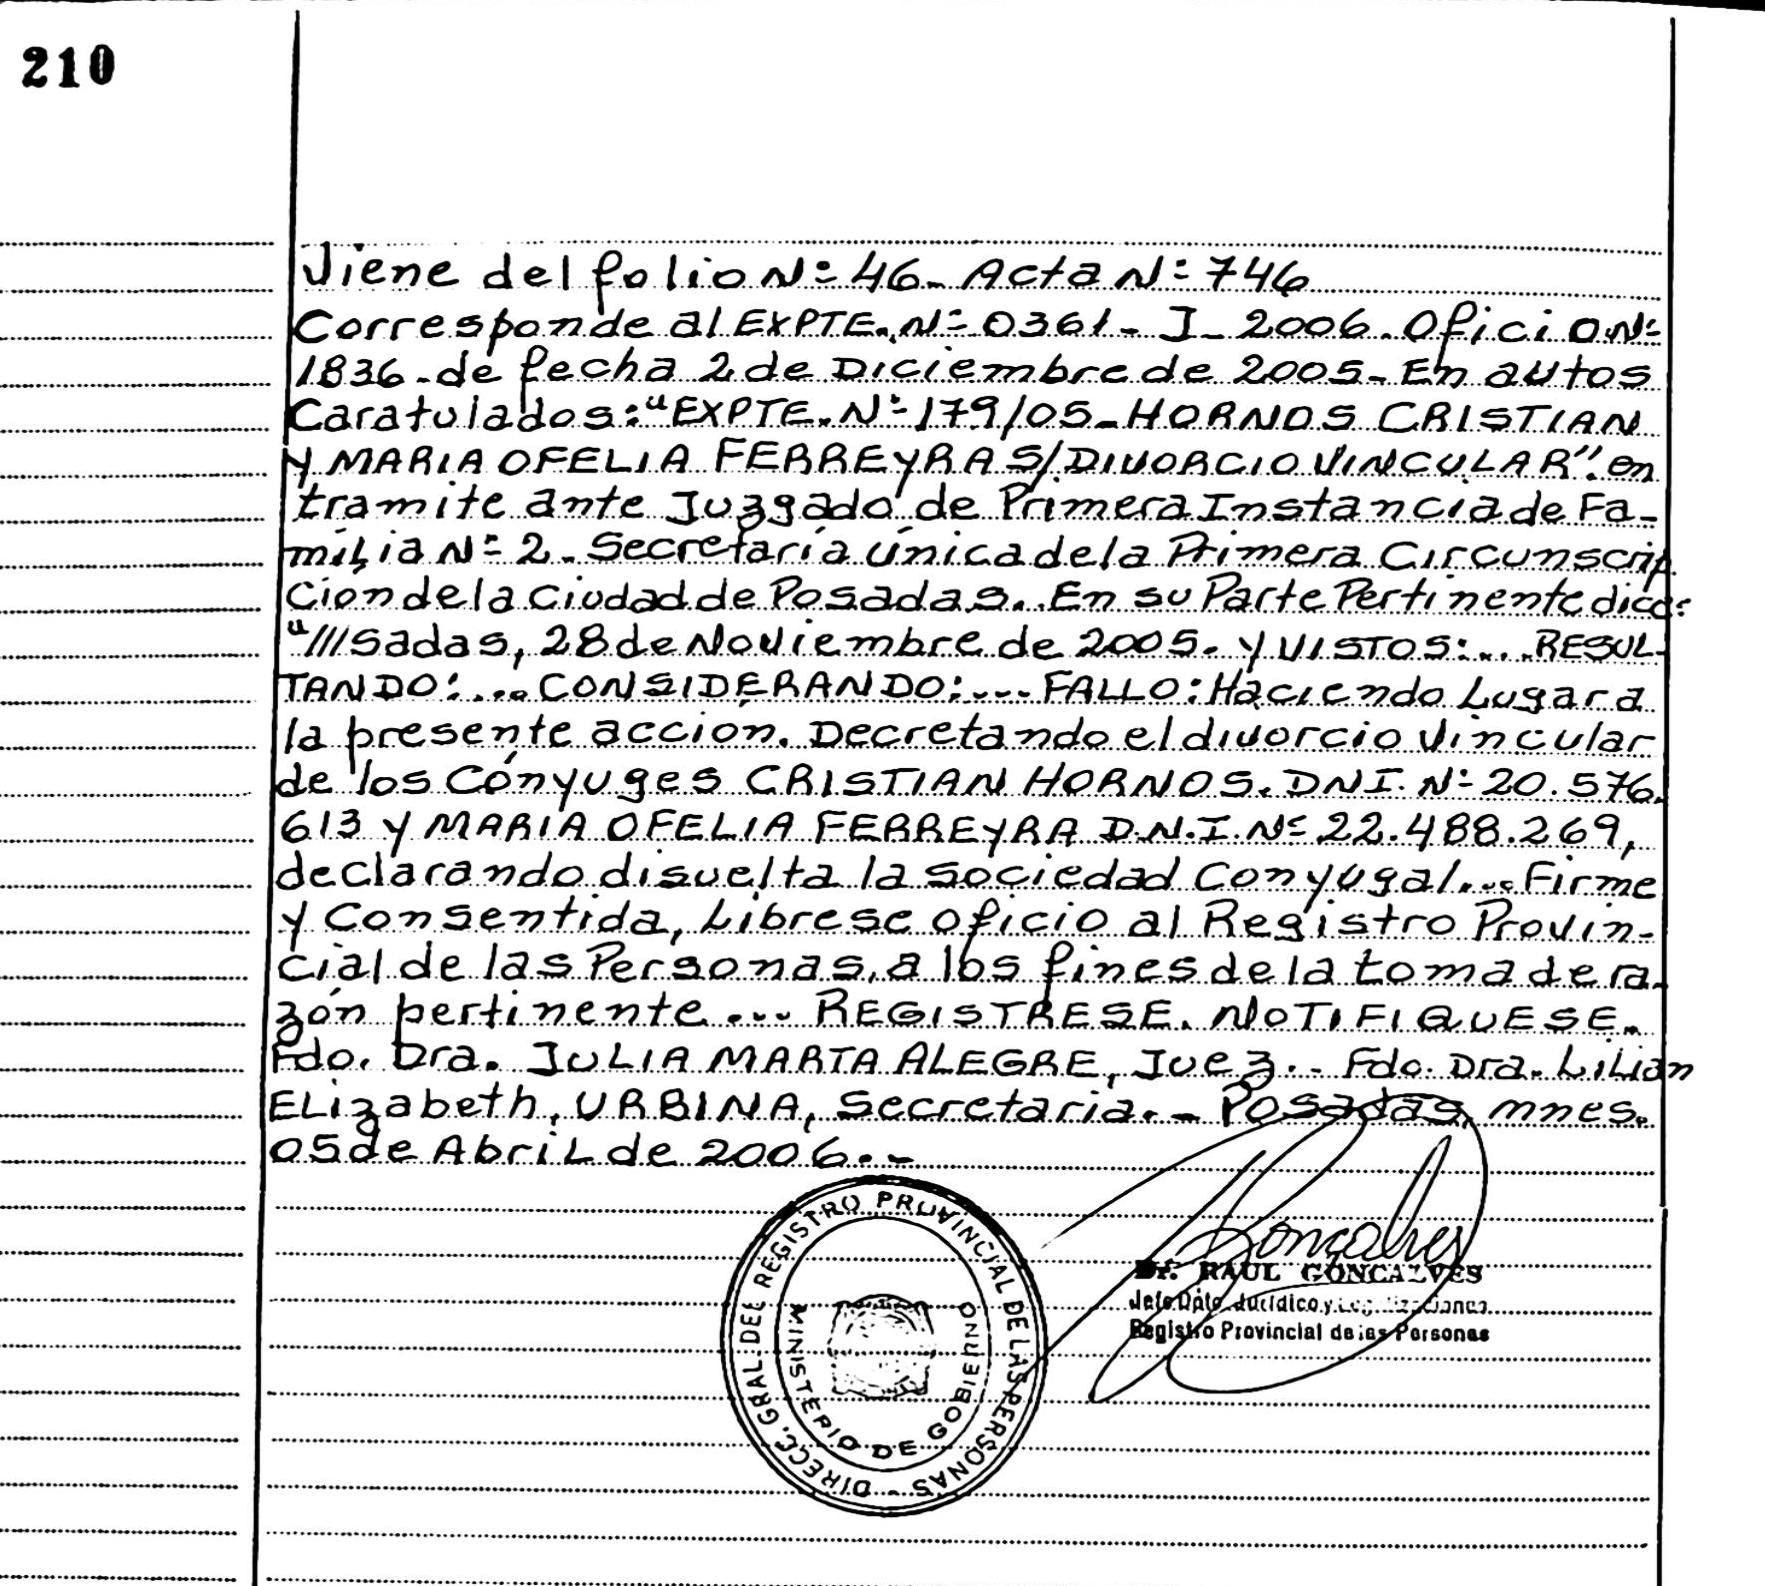 210
Viene del folio Nº 46- Acta Nº 746
Corresponde al EXPTE. Nº 0361- J- 2006. Oficio Nº
1836. de fecha 2 de Diciembre de 2005- En autos
Caratulados: "EXPTE. Nº 179/05- HORNOS CRISTIAN
Y MARIA OFELIA FERREYRA S/ DIVORCIO VINCULAR". en
tramite ante Juzgado de Primera Instancia de Fa-
milia Nº 2 - Secretaría única de la Primera Circunscrip
Ción de la Ciudad de Posadas. En su Parte Pertinente dice:
"///sadas, 28 de Noviembre de 2005. Y VISTOS:... RESUL-
TANDO:... CONSIDERANDO:.... FALLO: Haciendo Lugar a
la presente acción. Decretando el divorcio vincular
de los Cónyuges CRISTIAN HORNOS. DNI. Nº 20.576.
613 y MARIA OFELIA FERREYRA D.N.I. Nº 22.488.269,
declarando disuelta la Sociedad Conyugal.... Firme
y Consentida, Líbrese oficio al Registro Provin-
cial de las Personas, a los fines de la toma de ra-
zón pertinente.... REGISTRESE. NOTIFIQUESE.
Fdo. Dra. JULIA MARTA ALEGRE, Juez.- Fdo. Dra. Lilian
Elizabeth, URBINA, Secretaria.- Posadas, mnes.
05 de Abril de 2006.-
DIRECC. GRAL. DEL REGISTRO PROVINCIAL DE LAS PERSONAS -
MINISTERIO DE GOBIERNO
Gonçalves
Dr. RAUL GONCALVES
Jefe Dpto. Jurídico y Legalizaciones
Registro Provincial de las Personas